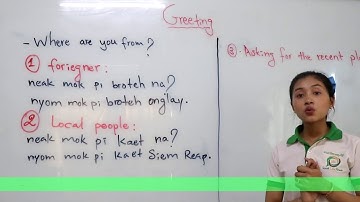 Greeting
- Where are you from?
① foriegner:
neak mok pi broteh na?
nyom mok pi broteh onglay.
② Local people:
neak mok pi kaet na?
nyom mok pi kaet Siem Reap.
③. Asking for the recent pl